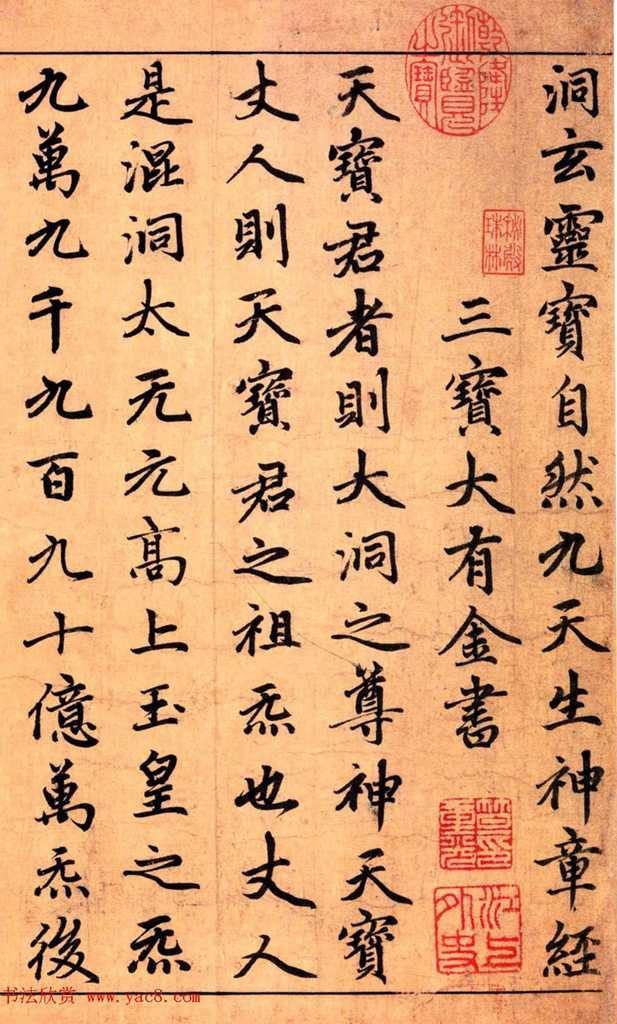 洞玄靈寶自然九天生神章經
三寶大有金書
天寶君者則大洞之尊神天寶
丈人則天寶君之祖炁也丈人
是混洞太无元高上玉皇之炁
九萬九千九百九十億萬炁後
書法欣赏 www.yac8.com